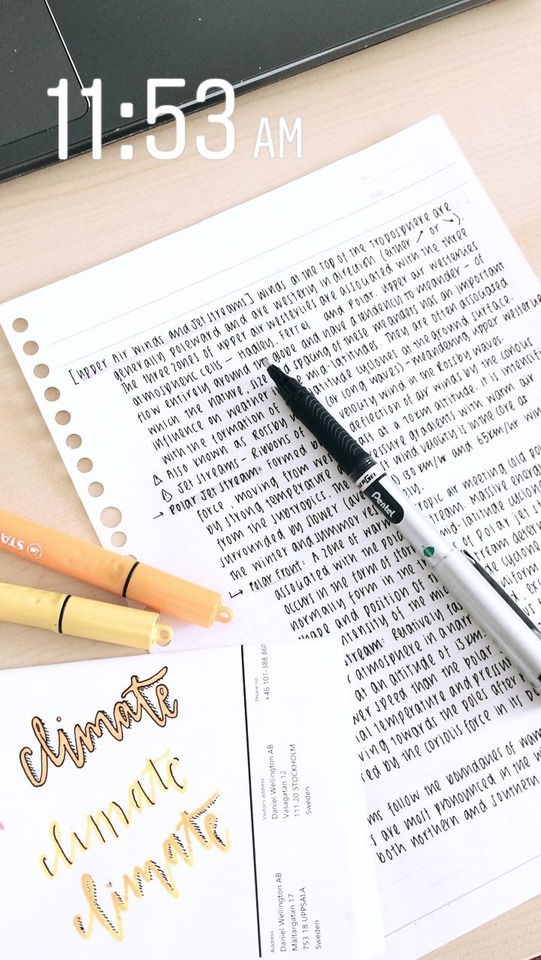 11:53 AM
[Upper Air Winds and Jet Streams] Winds at the top of the troposphere are
generally poleward and are westerly in direction (either ↗ or ↘).
The three zones of upper air westerlies are associated with the three
atmospheric cells - Hadley, Ferrel and Polar. Upper air westerlies
flow entirely around globe and have a tendency to meander - of
which the nature, size spacing of these meanders has an important
influence on weather mid-latitudes. They are often associated
with the formation of latitude cyclones at the ground surface.
Δ Also known as Rossby (or long waves) - meandering upper westerlies
Δ Jet Streams - Ribbons of velocity wind in the Rossby waves.
→ Polar Jet Stream: Formed by deflection of air winds by the coriolis
force, moving from west east at a 10km altitude. It is intensified
by strong temperature pressure gradients with warm air
from the subtropics. wind velocity in the core as
surrounded by slower 130 km/hr and 65km/hr
the winter and summer
↳ Polar Front: A zone of warm tropic air meeting cold
associated with the polar stream. Massive energy
occurs in the form of mid-latitude cyclones
normally form in the of Polar Jet
shape and position of the stream
intensity of the cyclone
stream: Relatively
atmosphere in a narrow
at an altitude of 13km
speed than the polar
temperature and pressure
moving towards the poles after
by the coriolis force in its
follow the boundaries of warm
are most pronounced in the
both northern and southern
Pentel
STA
climate
climate
climate
Phone no.
+46 101-388 860
Visitor's address
Daniel Wellington AB
Vasagatan 12
111 20 STOCKHOLM
Sweden
Address
Daniel Wellington AB
Mältargatan 17
753 18 UPPSALA
Sweden